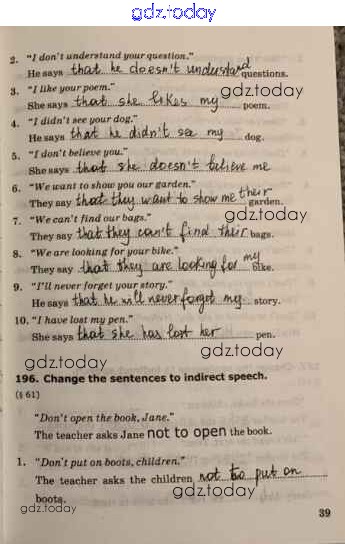 gdz.today
2. "I don't understand your question."
He says that he doesn't understand questions.
gdz.today
3. "I like your poem."
She says that she likes my poem.
4. "I didn't see your dog."
He says that he didn't see my dog.
5. "I don't believe you."
She says that she doesn't believe me
6. "We want to show you our garden."
They say that they want to show me their garden.
gdz.today
7. "We can't find our bags."
They say that they can't find their bags.
8. "We are looking for your bike."
They say that they are looking for my bike.
9. "I'll never forget your story."
He says that he will never forget my story.
10. "I have lost my pen."
She says that she has lost her pen.
gdz.today
gdz.today
196. Change the sentences to indirect speech.
(§ 61)
"Don't open the book, Jane."
The teacher asks Jane not to open the book.
1. "Don't put on boots, children."
The teacher asks the children not to put on
boots.
gdz.today
gdz.today
39